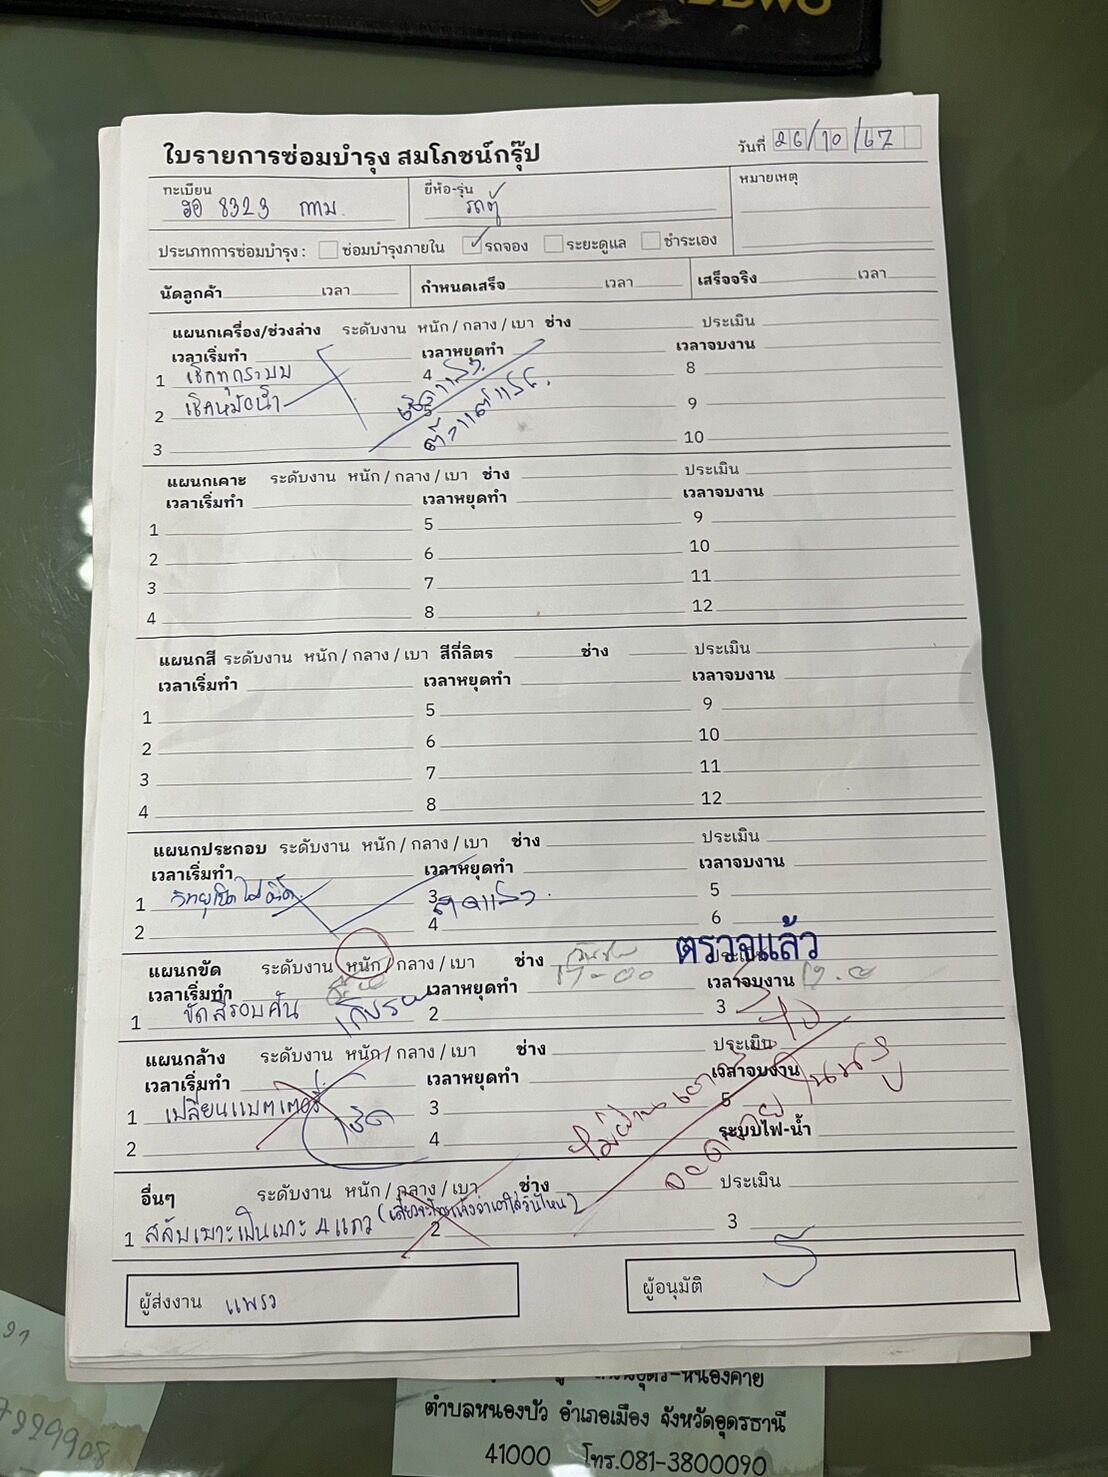 ใบรายการซ่อมบำรุง สมโภชน์กรุ๊ป
วันที่ 26/10/67
ทะเบียน
ฮอ 8323 กทม.
ยี่ห้อ-รุ่น
รถตู้
หมายเหตุ
ประเภทการซ่อมบำรุง : ซ่อมบำรุงภายใน ✓ รถจอง ระยะดูแล ชำระเอง
นัดลูกค้า เวลา กำหนดเสร็จ เวลา เสร็จจริง เวลา
แผนกเครื่อง/ช่วงล่าง ระดับงาน หนัก / กลาง / เบา ช่าง ประเมิน
เวลาเริ่มทำ เวลาหยุดทำ เวลาจบงาน
1 เช็กทุกระบบ 4 8
2 เช็คหม้อน้ำ 9
3 10
แผนกเคาะ ระดับงาน หนัก / กลาง / เบา ช่าง ประเมิน
เวลาเริ่มทำ เวลาหยุดทำ เวลาจบงาน
1 5 9
2 6 10
3 7 11
4 8 12
แผนกสี ระดับงาน หนัก / กลาง / เบา สีกี่ลิตร ช่าง ประเมิน
เวลาเริ่มทำ เวลาหยุดทำ เวลาจบงาน
1 5 9
2 6 10
3 7 11
4 8 12
แผนกประกอบ ระดับงาน หนัก / กลาง / เบา ช่าง ประเมิน
เวลาเริ่มทำ เวลาหยุดทำ เวลาจบงาน
1 วิทยุเปิดไม่ติด 3 5
2 4 6
แผนกขัด ระดับงาน หนัก / กลาง / เบา ช่าง 17-00 ประเมิน
ตรวจแล้ว
เวลาเริ่มทำ เวลาหยุดทำ เวลาจบงาน
1 ขัดสีรอบคัน 2 3
แผนกล้าง ระดับงาน หนัก / กลาง / เบา ช่าง ประเมิน
เวลาเริ่มทำ เวลาหยุดทำ เวลาจบงาน
1 เปลี่ยนแบตเตอรี่ 3 5
2 4 ระบบไฟ-น้ำ
อื่นๆ ระดับงาน หนัก / กลาง / เบา ช่าง ประเมิน
1 สลับเบาะเป็นเบาะ 4 แถว 2 3
ผู้ส่งงาน แพรว
ผู้อนุมัติ
ตำบลหนองบัว อำเภอเมือง จังหวัดอุดรธานี
41000 โทร.081-3800090